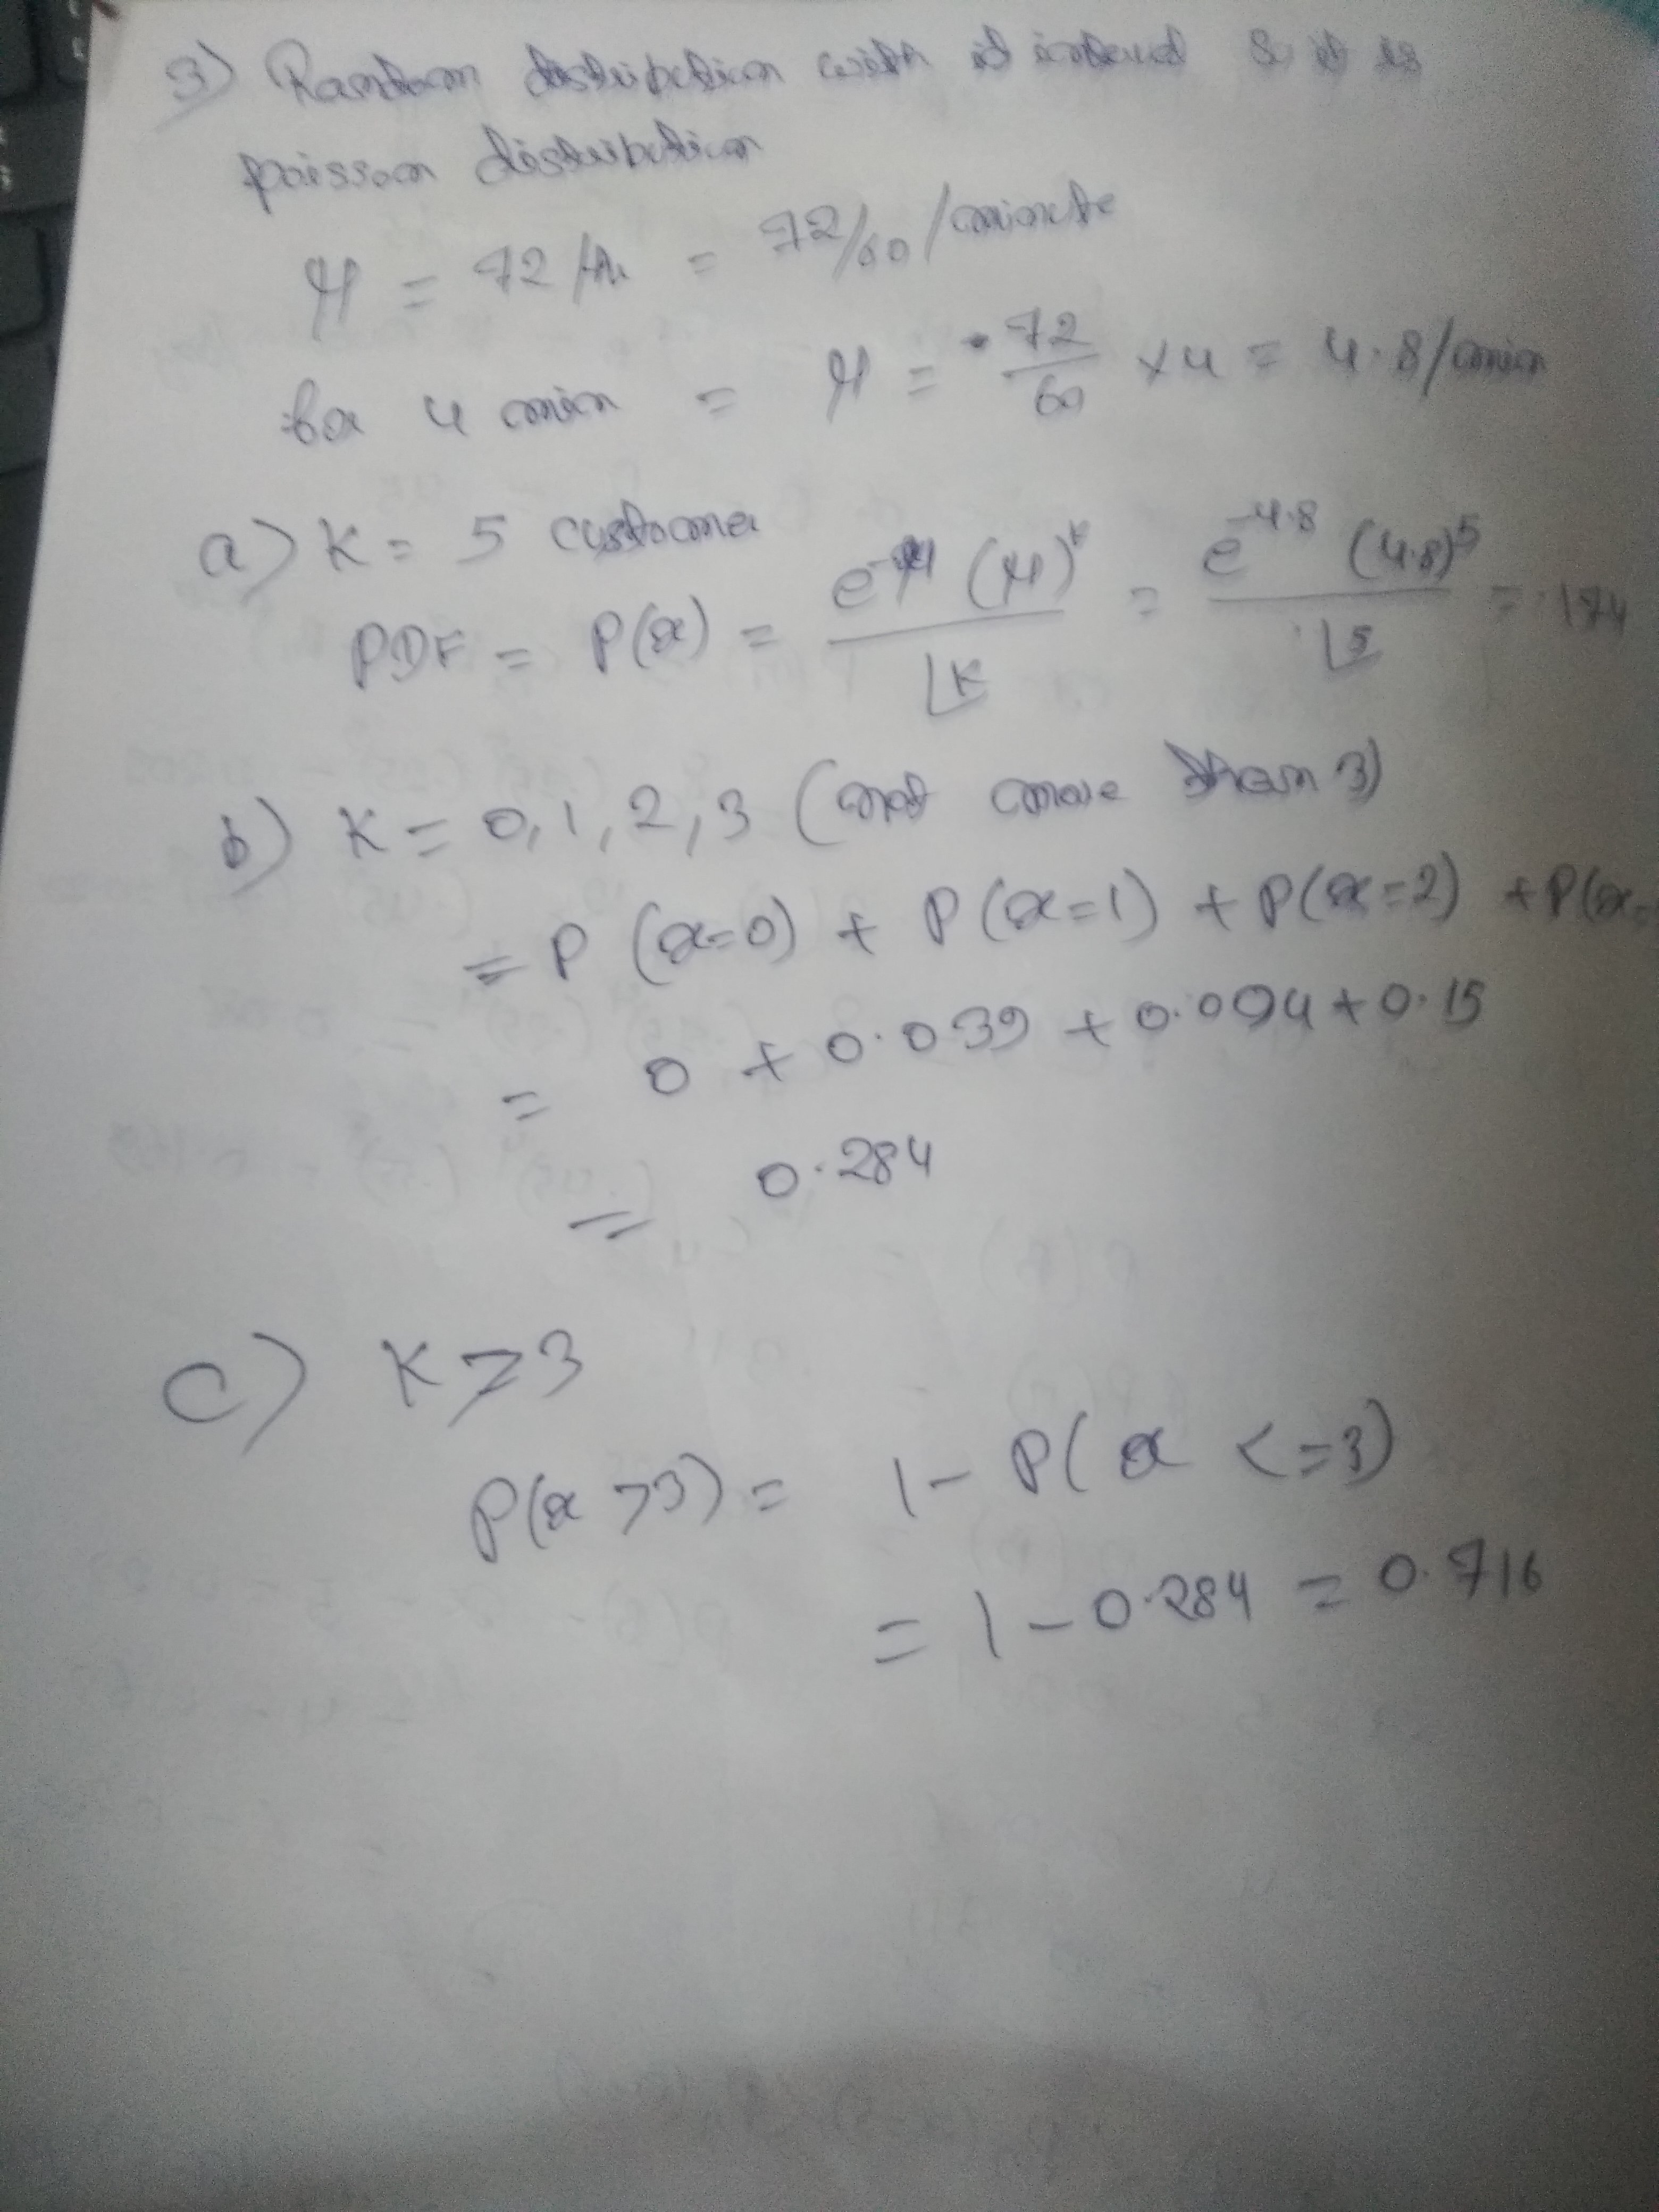 3) Random distribution with it interval & it is
poisson distribution
μ = 72/hr = 72/60 /minute
for 4 min = μ = 72/60 × 4 = 4.8/min
a) K = 5 customer
PDF = P(x) = e^-μ (μ)^K / ∟K = e^-4.8 (4.8)^5 / ∟5 = .174
b) K = 0, 1, 2, 3 (not more than 3)
= P (x=0) + P (x=1) + P(x=2) + P(x=
= 0 + 0.039 + 0.094 + 0.15
= 0.284
c) K > 3
P(x > 3) = 1 - P( x <= 3)
= 1 - 0.284 = 0.716